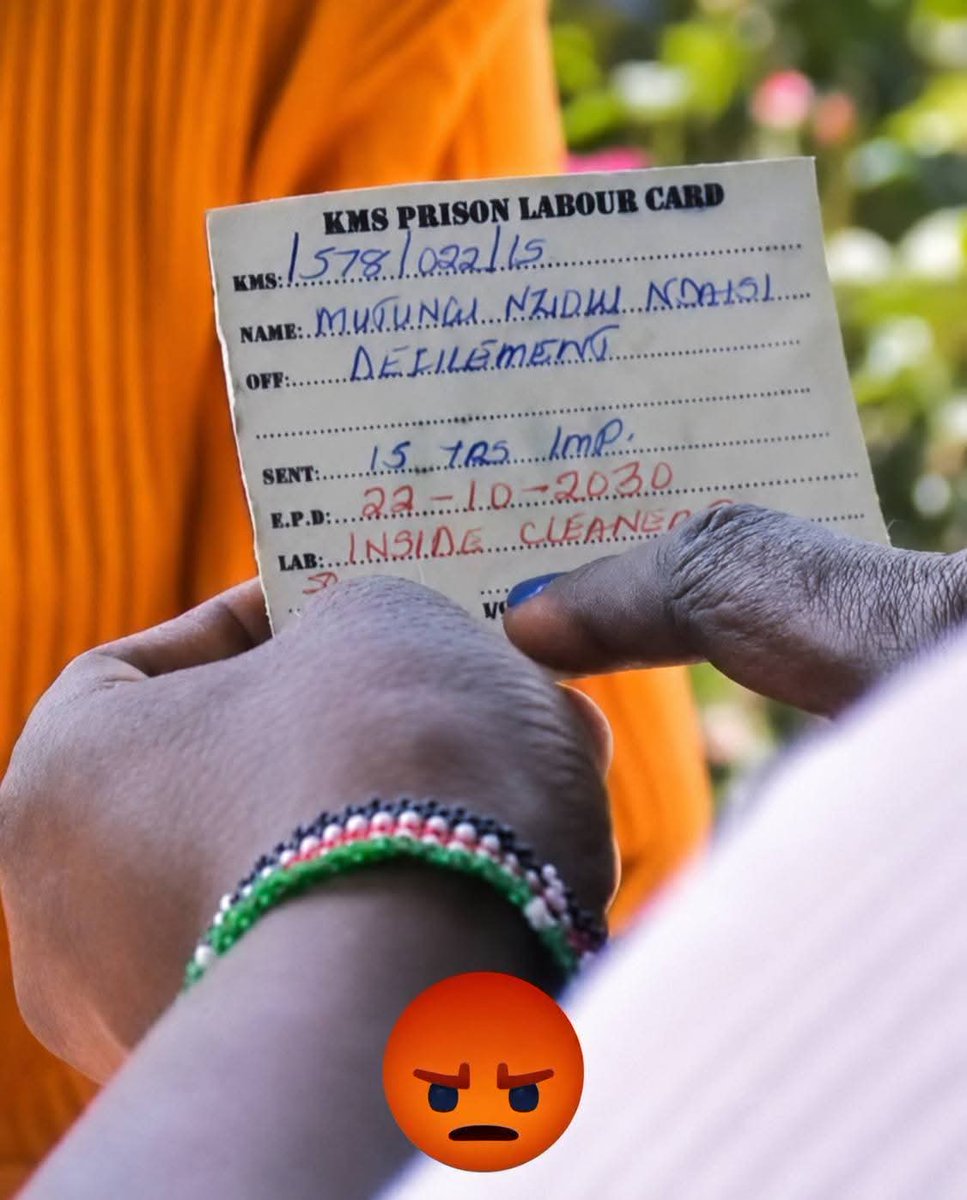 KMS PRISON LABOUR CARD
KMS: 1578/022/15
NAME: MUTUNGU NZIOKI NDAISI
OFF: DEFILEMENT
SENT: 15 YRS IMP.
E.P.D: 22-10-2030
LAB: INSIDE CLEANER